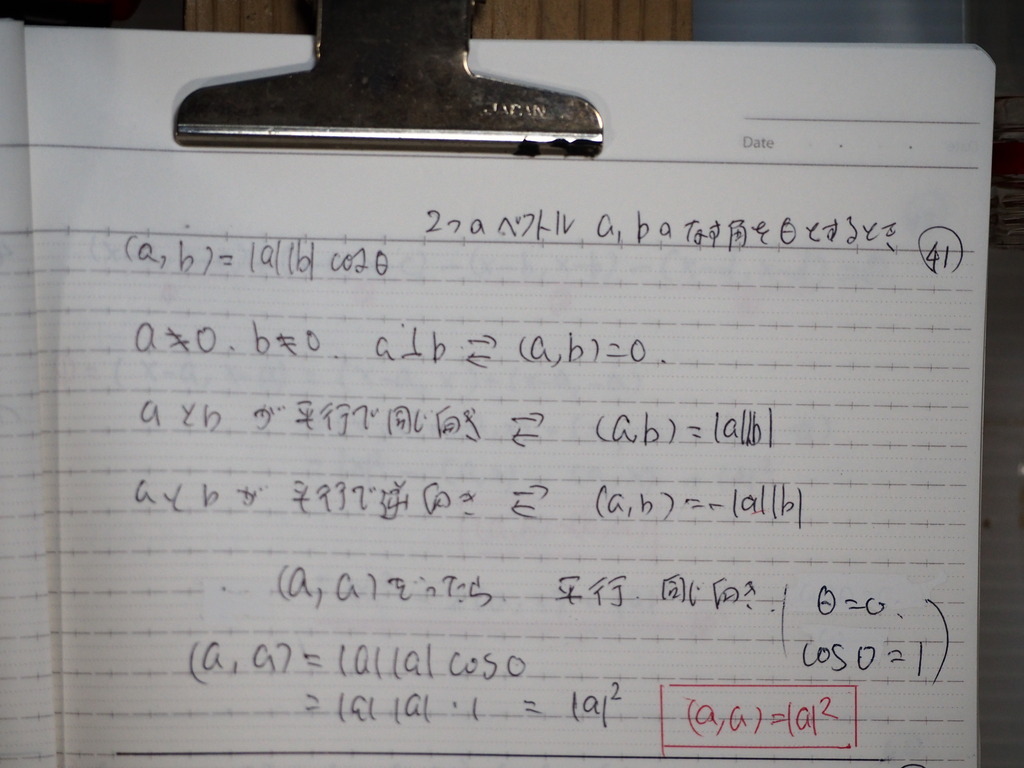 JAPAN
Date
2つのベクトル a, b のなす角を θ とするとき
41
(a, b) = |a||b| cosθ
a≠0. b≠0. a⊥b ⇄ (a, b)=0.
aとb が 平行で同じ向き ⇄ (a,b) = |a||b|
aとb が 平行で逆向き ⇄ (a, b) = -|a||b|
(a, a) 平行. 同じ向き. ( θ=0. cos0=1 )
(a, a) = |a||a| cos0
= |a| |a| · 1 = |a|²
(a, a)=|a|²